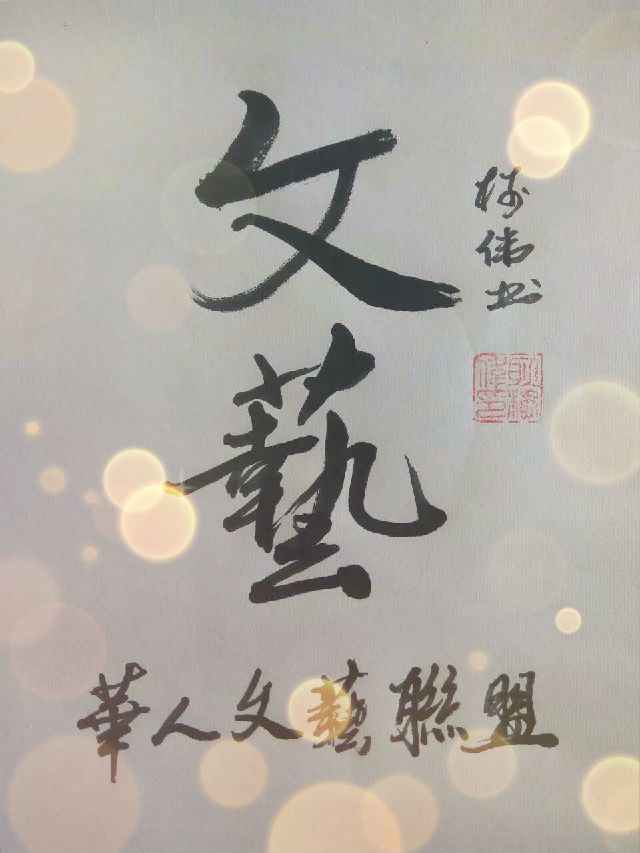 文藝
伟书
華人文藝聯盟